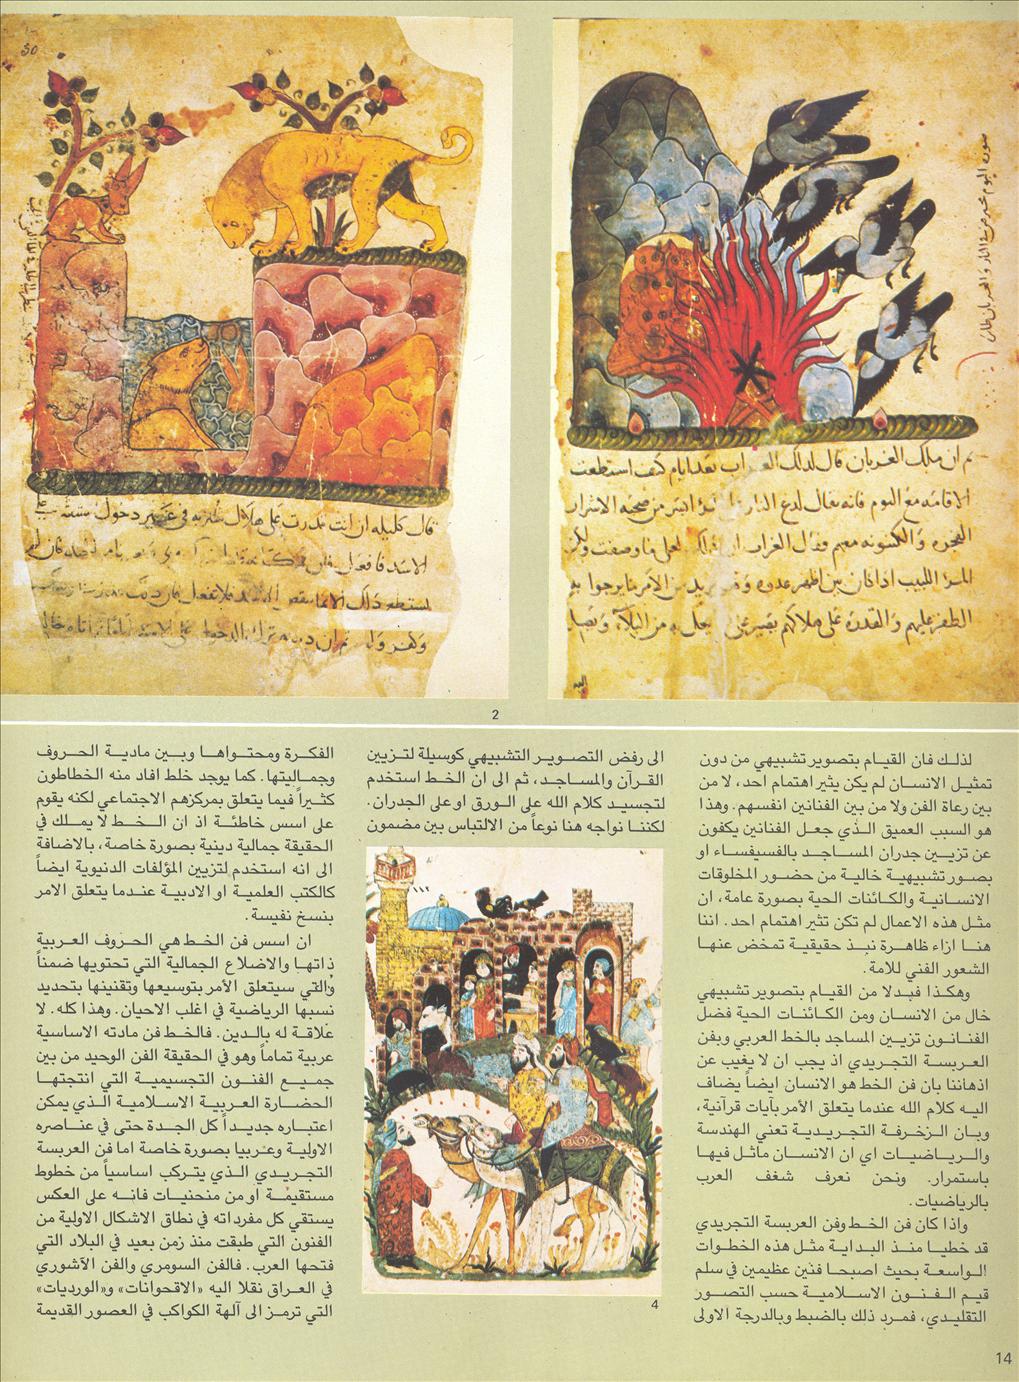 30
قال كليله ان انت قدرت على هلاك شتربه في غير دخول مشقة على
الاسد فافعل فان
يستطع ذلك الا
وكفر
ثم ان ملك الغربان قال لذلك الغراب بعد ايام كيف استطعت
الاقامه مع البوم فانه يقال لدغ النار ايسر من صحبه الاشرار
الفجره والكينونه معهم وقال الغراب ان ذلك لعلى ما وصفت ولكن
المرء اللبيب اذا كان بين اظهر عدوه وهو يريد من الامر ما يرجوا به
الظفر عليهم والقدرة على هلاكهم يصبر على من البلاء
اليه
2
لذلك فان القيام بتصوير تشبيهي من دون
تمثيل الانسان لم يكن يثير اهتمام احد، لا من
بين رعاة الفن ولا من بين الفنانين انفسهم. وهذا
هو السبب العميق الذي جعل الفنانين يكفون
عن تزيين جدران المساجد بالفسيفساء او
بصور تشبيهية خالية من حضور المخلوقات
الانسانية والكائنات الحية بصورة عامة، ان
مثل هذه الاعمال لم تكن تثير اهتمام احد. اننا
هنا ازاء ظاهرة نبذ حقيقية تمخض عنها
الشعور الفني للامة.
وهكذا فبدلا من القيام بتصوير تشبيهي
خال من الانسان ومن الكائنات الحية فضل
الفنانون تزيين المساجد بالخط العربي وبفن
العربسة التجريدي اذ يجب ان لا يغيب عن
اذهاننا بان فن الخط هو الانسان ايضاً يضاف
اليه كلام الله عندما يتعلق الأمر بآيات قرآنية،
وبان الزخرفة التجريدية تعني الهندسة
والرياضيات اي ان الانسان ماثل فيها
باستمرار. ونحن نعرف شغف العرب
بالرياضيات.
واذا كان فن الخط وفن العربسة التجريدي
قد خطيا منذ البداية مثل هذه الخطوات
الواسعة بحيث اصبحا فنين عظيمين في سلم
قيم الفنون الاسلامية حسب التصور
التقليدي، فمرد ذلك بالضبط وبالدرجة الاولى
الى رفض التصوير التشبيهي كوسيلة لتزيين
القرآن والمساجد، ثم الى ان الخط استخدم
لتجسيد كلام الله على الورق او على الجدران.
لكننا نواجه هنا نوعاً من الالتباس بين مضمون
4
الفكرة ومحتواها وبين مادية الحروف
وجماليتها. كما يوجد خلط افاد منه الخطاطون
كثيراً فيما يتعلق بمركزهم الاجتماعي لكنه يقوم
على اسس خاطئة اذ ان الخط لا يملك في
الحقيقة جمالية دينية بصورة خاصة، بالاضافة
الى انه استخدم لتزيين المؤلفات الدنيوية ايضاً
كالكتب العلمية او الادبية عندما يتعلق الامر
بنسخ نفيسة.
ان اسس فن الخط هي الحروف العربية
ذاتها والاضلاع الجمالية التي تحتويها ضمناً
والتي سيتعلق الأمر بتوسيعها وتقنينها بتحديد
نسبها الرياضية في اغلب الاحيان. وهذا كله. لا
علاقة له بالدين. فالخط فن مادته الاساسية
عربية تماماً وهو في الحقيقة الفن الوحيد من بين
جميع الفنون التجسيمية التي انتجتها
الحضارة العربية الاسلامية الذي يمكن
اعتباره جديداً كل الجدة حتى في عناصره
الاولية وعربيا بصورة خاصة اما فن العربسة
التجريدي الذي يتركب اساسياً من خطوط
مستقيمة او من منحنيات فانه على العكس
يستقي كل مفرداته في نطاق الاشكال الاولية من
الفنون التي طبقت منذ زمن بعيد في البلاد التي
فتحها العرب. فالفن السومري والفن الآشوري
في العراق نقلا اليه «الاقحوانات» و«الورديات»
التي ترمز الى آلهة الكواكب في العصور القديمة
14